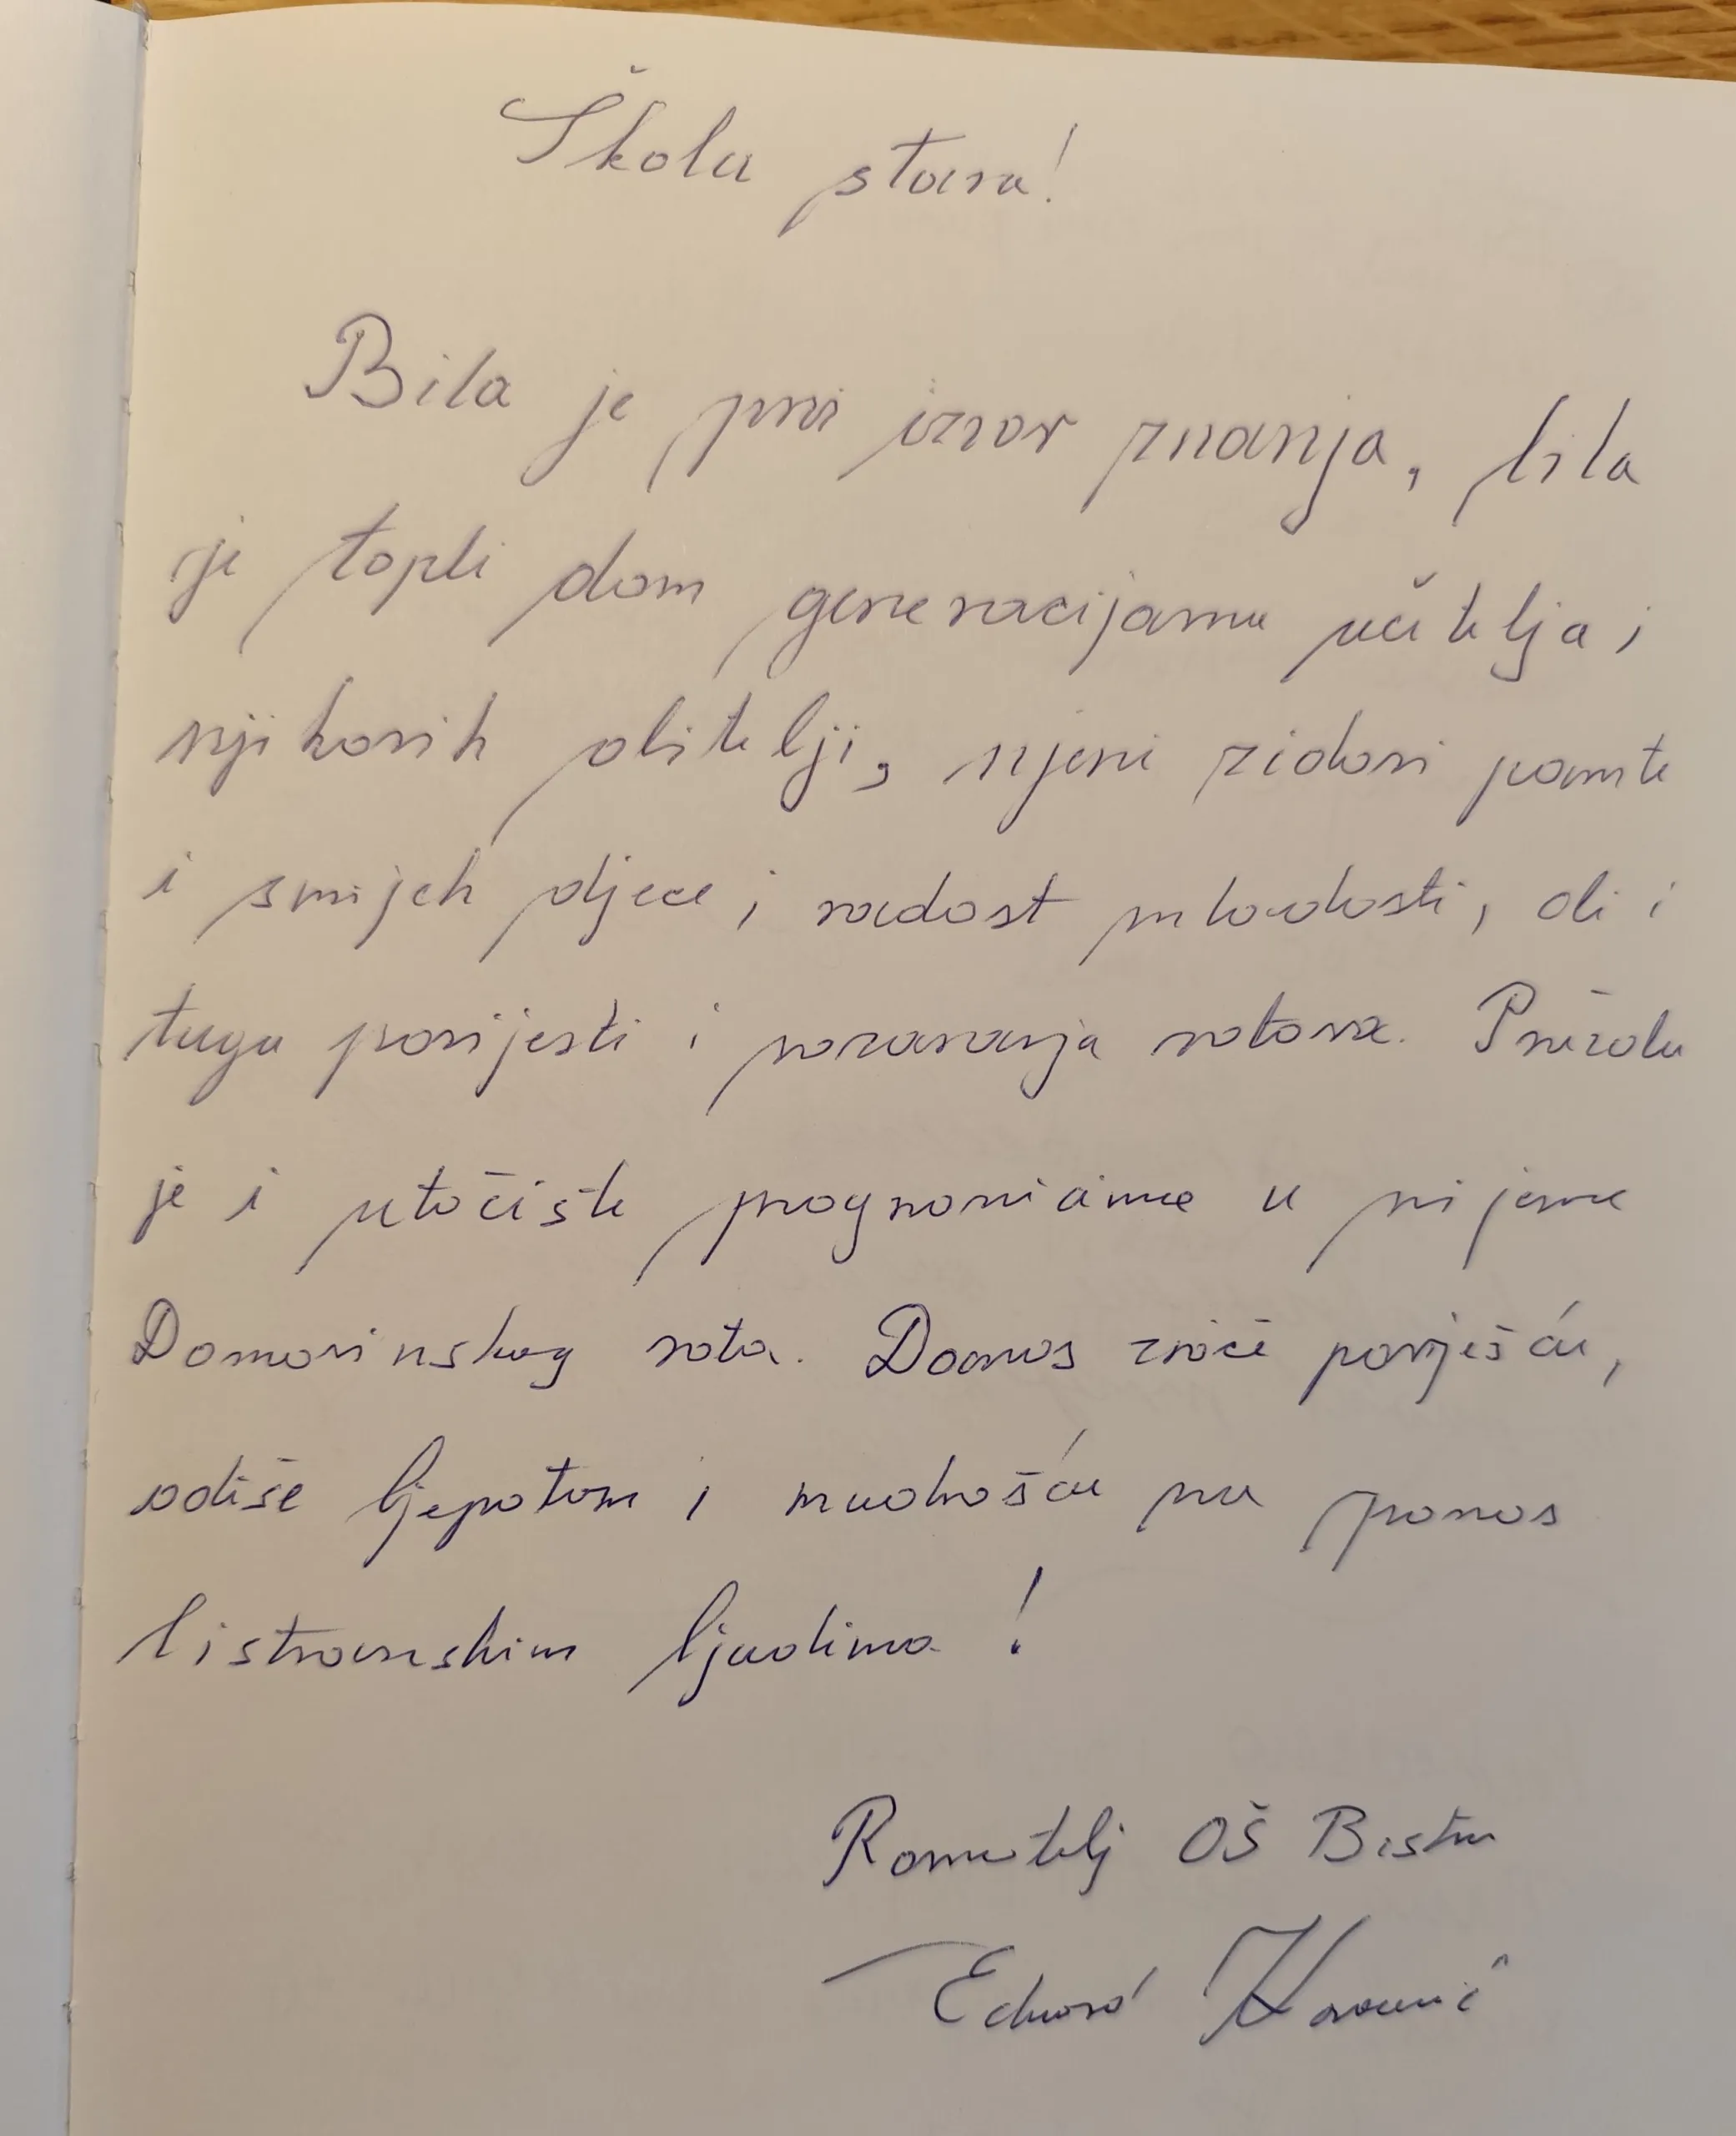 Škola stara!
Bila je prvi izvor znanja, bila
je topli dom generacijama učitelja i
njihovih obitelji, njeni zidovi pamte
i smijeh djece i radost mladosti, ali i
tugu povijesti i razaranja ratova. Pružala
je i utočište prognanicima u vrijeme
Domovinskog rata. Danas zrači poviješću,
odiše ljepotom i mudrošću na ponos
bistranskim ljudima!
Ravnatelj OŠ Bistra
Eduard